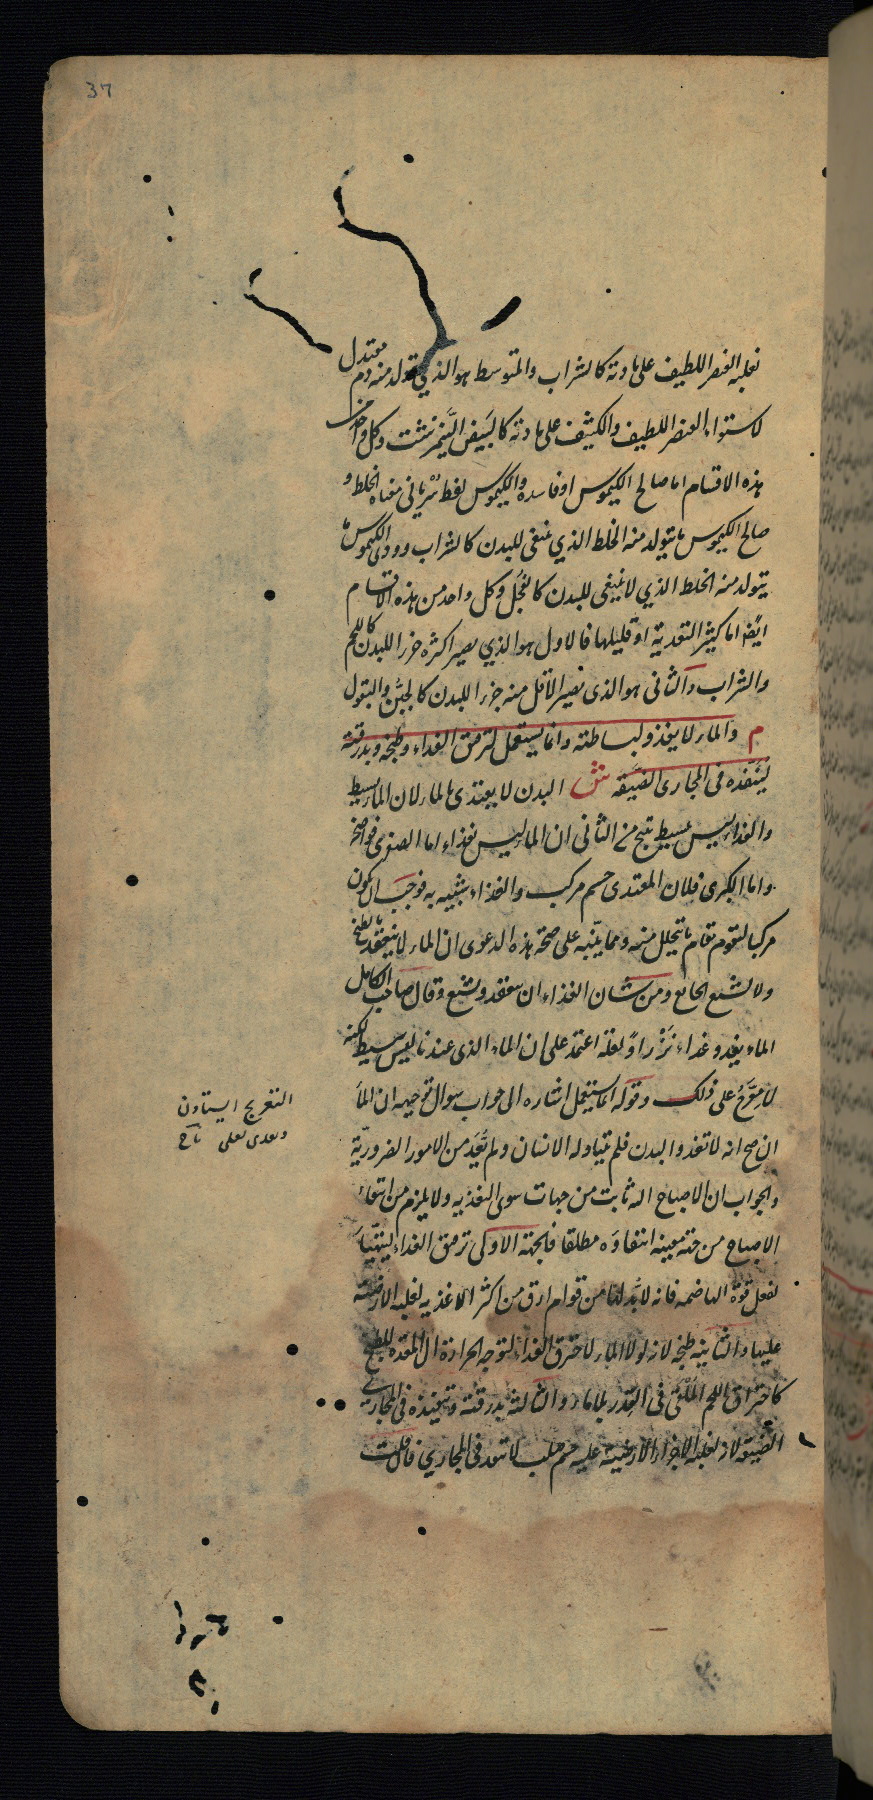 37
لغلبة العنصر اللطيف على مادته كالشراب والمتوسط هو الذي يتولد منه دم معتدل
لاستواء العنصر اللطيف والكثيف على مادته كالبيض النيمرشت وكل واحد من
هذه الاقسام اما صالح الكيموس او فاسده والكيموس لفظ سرياني معناه الخلط و
صالح الكيموس ما يتولد منه الخلط الذي ينبغى للبدن كالشراب وردى الكيموس ما
يتولد منه الخلط الذي لا ينبغى للبدن كالفجل وكل واحد من هذه الاقسام
ايضا اما كثير التغذية او قليلها فالاول هو الذي يصير اكثره جزءا للبدن كاللحم
والشراب والثانى هو الذى يصير الاقل منه جزءا للبدن كالجبن والبقول
م والماء لا يغذو لبساطته وانما يستعمل لترقيق الغذاء وطبخه وبدرقته
لينفذه فى المجارى الضيقه ش البدن لا يغتذى بالماء لان الماء بسيط
والغذاء ليس ببسيط ينتج من الثانى ان الماء ليس بغذاء اما الصغرى فواضحة
واما الكبرى فلان المغتذى جسم مركب والغذاء شبيه به فوجب ان يكون
مركبا ليقوم مقام ما يتحلل منه ومما ينبه على صحة هذه الدعوى ان الماء لا ينعقد بالطبخ
ولا يشبع الجائع ومن شان الغذاء ان ينعقد ويشبع وقال صاحب الكامل
الماء يغذو غذاء نزرا ولعله اعتمد على ان الماء الذى عندنا ليس ببسيط لكنه
لا يعرج على ذلك وقوله انما يستعمل اشاره الى جواب سوال توجيهه ان الماء
ان صح انه لا تغذو البدن فلم يتناوله الانسان ولم يعد من الامور الضرورية
والجواب ان الاحتياج اليه ثابت من جهات سوى التغذيه ولا يلزم من انتفاء
الاحتياج من جهة معينه انتفاؤه مطلقا فالجهة الاولى ترقيق الغذاء ليتهيأ
لفعل قوة الهاضمه فانه لا بد لها من قوام ارق من اكثر الاغذيه لغلبه الارضية
عليها والثانيه طبخه لانه لولا الماء لاحترق الغذاء لتوجه الحرارة الى المعدة للطبخ
كاحتراق اللحم الملقى فى القدر بلا ماء والثالثة بدرقته وتنفيذه فى المجارى
الضيقه لانه لغلبه الاجزاء الارضية عليه جسم صلب لا ينفذ فى المجاري فان قلت
التعريج ايستادن
ويعدى بعلى تاج